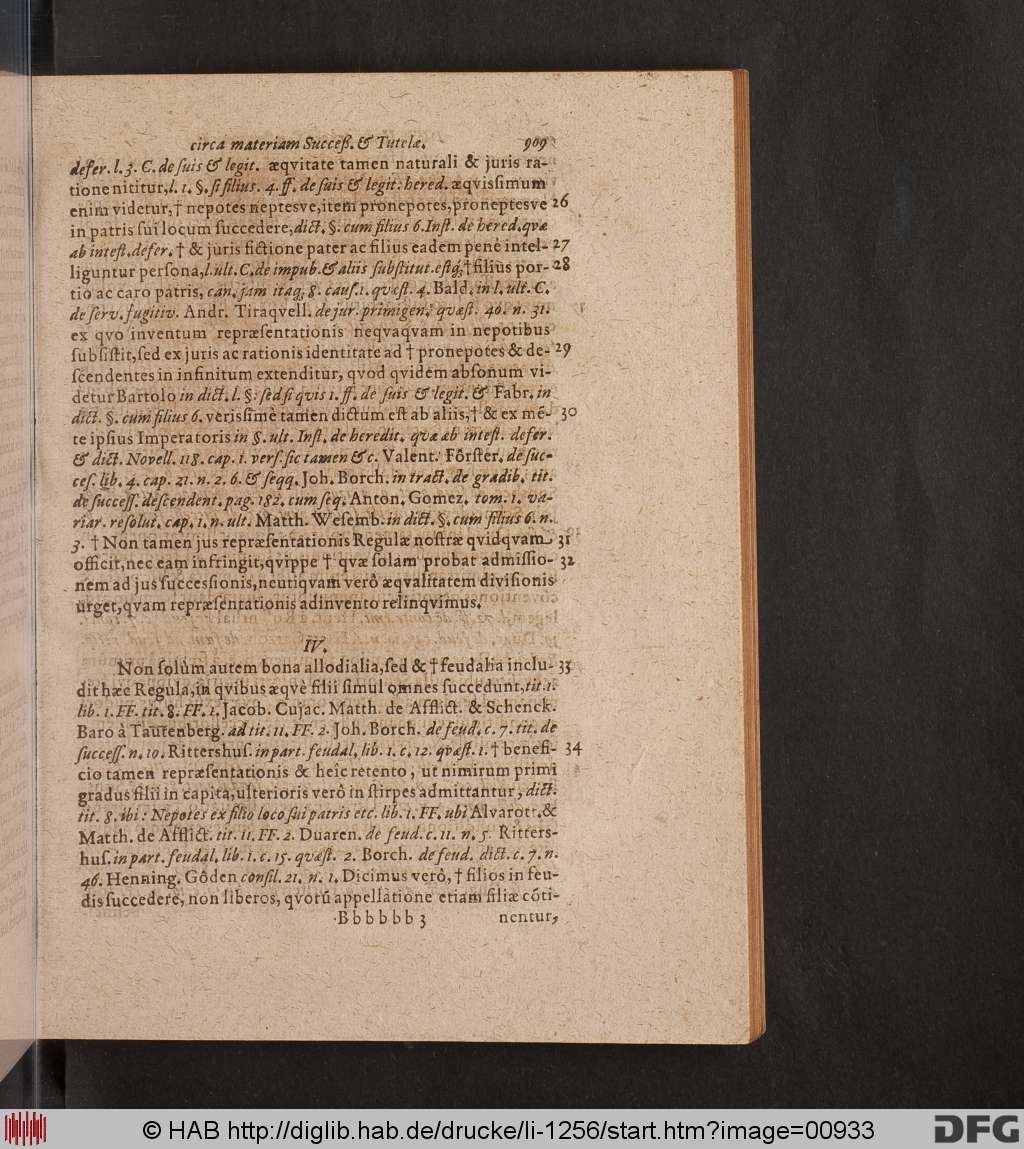 circa materiam Succeß. & Tutelæ. 909
defer. l. 3. C. de ſuis & legit. æqvitate tamen naturali & juris ra-
tione nititur, l. 1. §. ſi filius. 4. ff. de ſuis & legit. hered. æqvisſimum
enim videtur, † nepotes neptesve, item pronepotes, proneptesve 26
in patris ſui locum ſuccedere, dict. §. cum filius 6. Inſt. de hered. qvæ
ab inteſt. defer. † & juris fictione pater ac filius eadem penè intel- 27
liguntur perſona, l. ult. C. de impub. & aliis ſubſtitut. eſtq́; † filius por- 28
tio ac caro patris, can. jam itaq; 8. cauſ. 1. qvæſt. 4. Bald. in l. ult. C.
de ſerv. fugitiv. Andr. Tiraqvell. de jur. primigen. qvæſt. 46. n. 31.
ex qvo inventum repræſentationis neqvaqvam in nepotibus
ſubſiſtit, ſed ex juris ac rationis identitate ad † pronepotes & de- 29
ſcendentes in infinitum extenditur, qvod qvidem abſonum vi-
detur Bartolo in dict. l. §. ſed ſi qvis 1. ff. de ſuis & legit. & Fabr. in
dict. §. cum filius 6. verisſimè tamen dictum eſt ab aliis, † & ex mē- 30
te ipſius Imperatoris in §. ult. Inſt. de heredit. qvæ ab inteſt. defer.
& dict. Novell. 118. cap. 1. verſ. ſic tamen &c. Valent. Förſter. de ſuc-
ceſ. lib. 4. cap. 21. n. 2. 6. & ſeqq. Joh. Borch. in tract. de gradib. tit.
de ſucceſſ. deſcendent. pag. 182. cum ſeq. Anton. Gomez. tom. 1. va-
riar. reſolut. cap. 1. n. ult. Matth. Weſemb. in dict. §. cum filius 6. n.
3. † Non tamen jus repræſentationis Regulæ noſtræ qvidqvam 31
officit, nec eam infringit, qvippe † qvæ ſolam probat admiſſio- 32
nem ad jus ſuccesſionis, neutiqvam verò æqvalitatem diviſionis
urget, qvam repræſentationis adinvento relinqvimus.
IV.
Non ſolùm autem bona allodialia, ſed & † feudalia inclu- 33
dit hæc Regula, in qvibus æqvè filii ſimul omnes ſuccedunt, tit. 1.
lib. 1. FF. tit. 8. FF. 1. Jacob. Cujac. Matth. de Afflict. & Schenck.
Baro à Tautenberg. ad tit. 11. FF. 2. Joh. Borch. de feud. c. 7. tit. de
ſucceſſ. n. 10. Rittershuſ. in part. feudal. lib. 1. c. 12. qvæſt. 1. † benefi- 34
cio tamen repræſentationis & heîc retento, ut nimirum primi
gradus filii in capita, ulterioris verò in ſtirpes admittantur, dict.
tit. 8. ibi: Nepotes ex filio loco ſui patris etc. lib. 1. FF. ubi Alvarott. &
Matth. de Afflict. tit. 11. FF. 2. Duaren. de feud. c. 11. n. 5. Ritters-
huſ. in part. feudal. lib. 1. c. 15. qvæſt. 2. Borch. de feud. dict. c. 7. n.
46. Henning. Göden conſil. 21. n. 1. Dicimus verò, † filios in feu-
dis ſuccedere, non liberos, qvorū appellatione etiam filiæ cōti-
Bbbbbb 3 nentur,
© HAB http://diglib.hab.de/drucke/li-1256/start.htm?image=00933
DFG